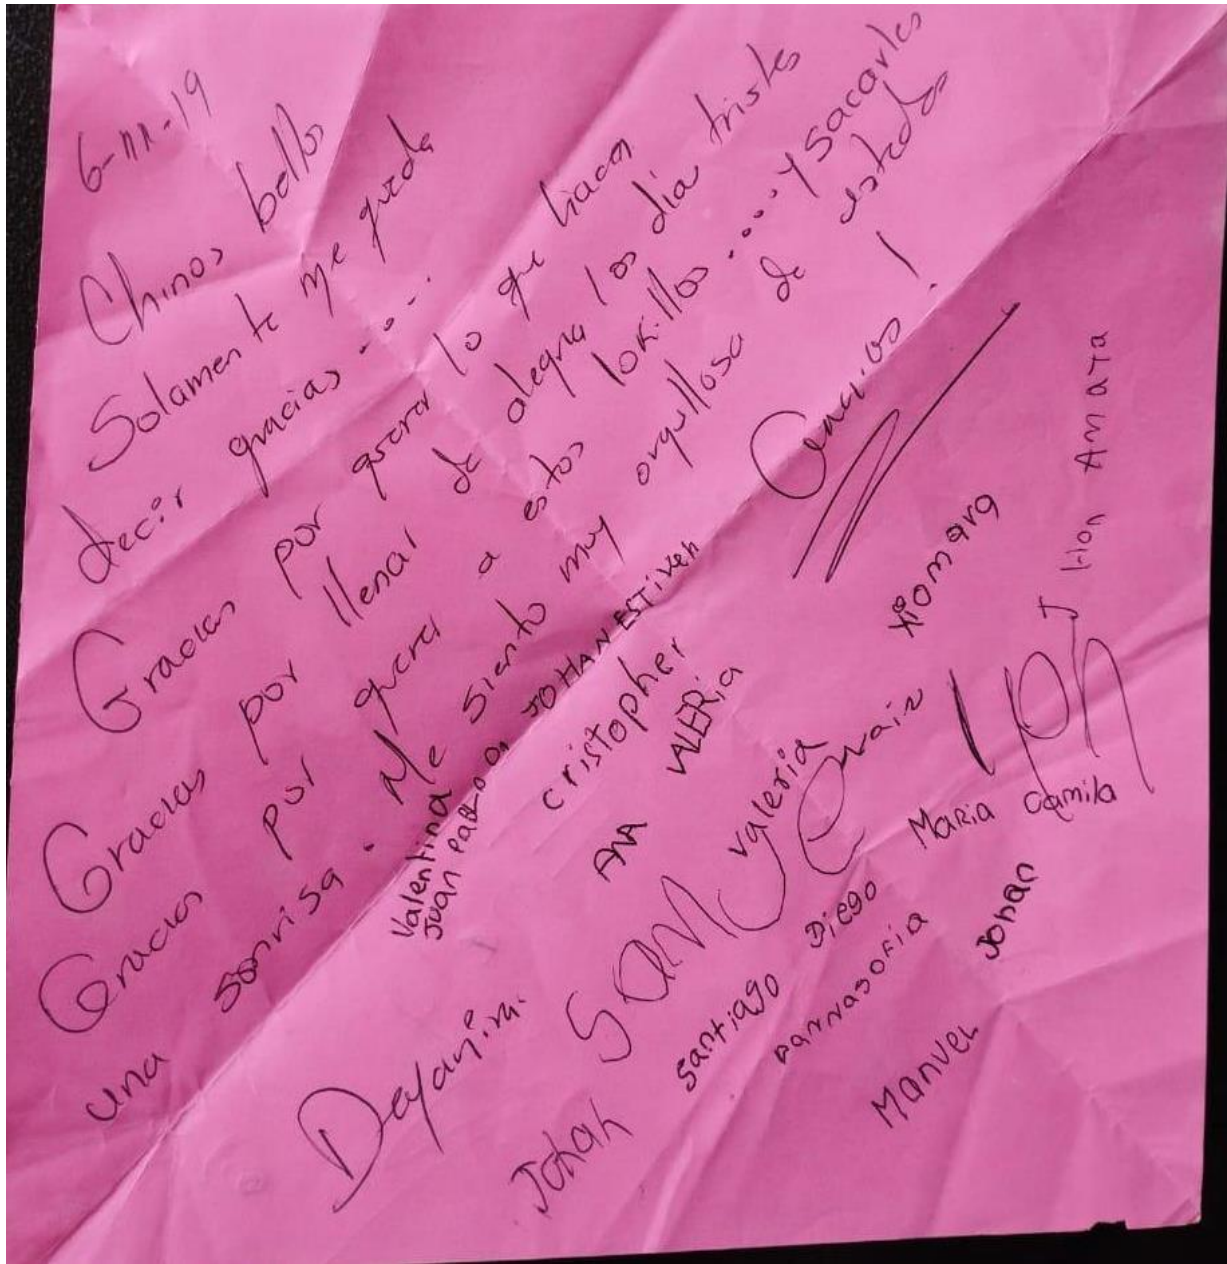 6-III-19
Chinos bellos
Solamente me queda
decir gracias....
Gracias por querer lo que hacen
Gracias por llenar de alegria los dia tristes
Gracias por querer a estos lokillos ..... y sacarles
una sonrisa. Me siento muy orgullosa de ustedes
!
Valentina
Juan Pablo
JOHAN ESTIVEN
cristopher
ANA VALERIA
valeria
Xiomara
Dayanira.
SAMU
Maria Camila
Johan
santiago
Diego
DANNASOFIA
Johan
Manuel